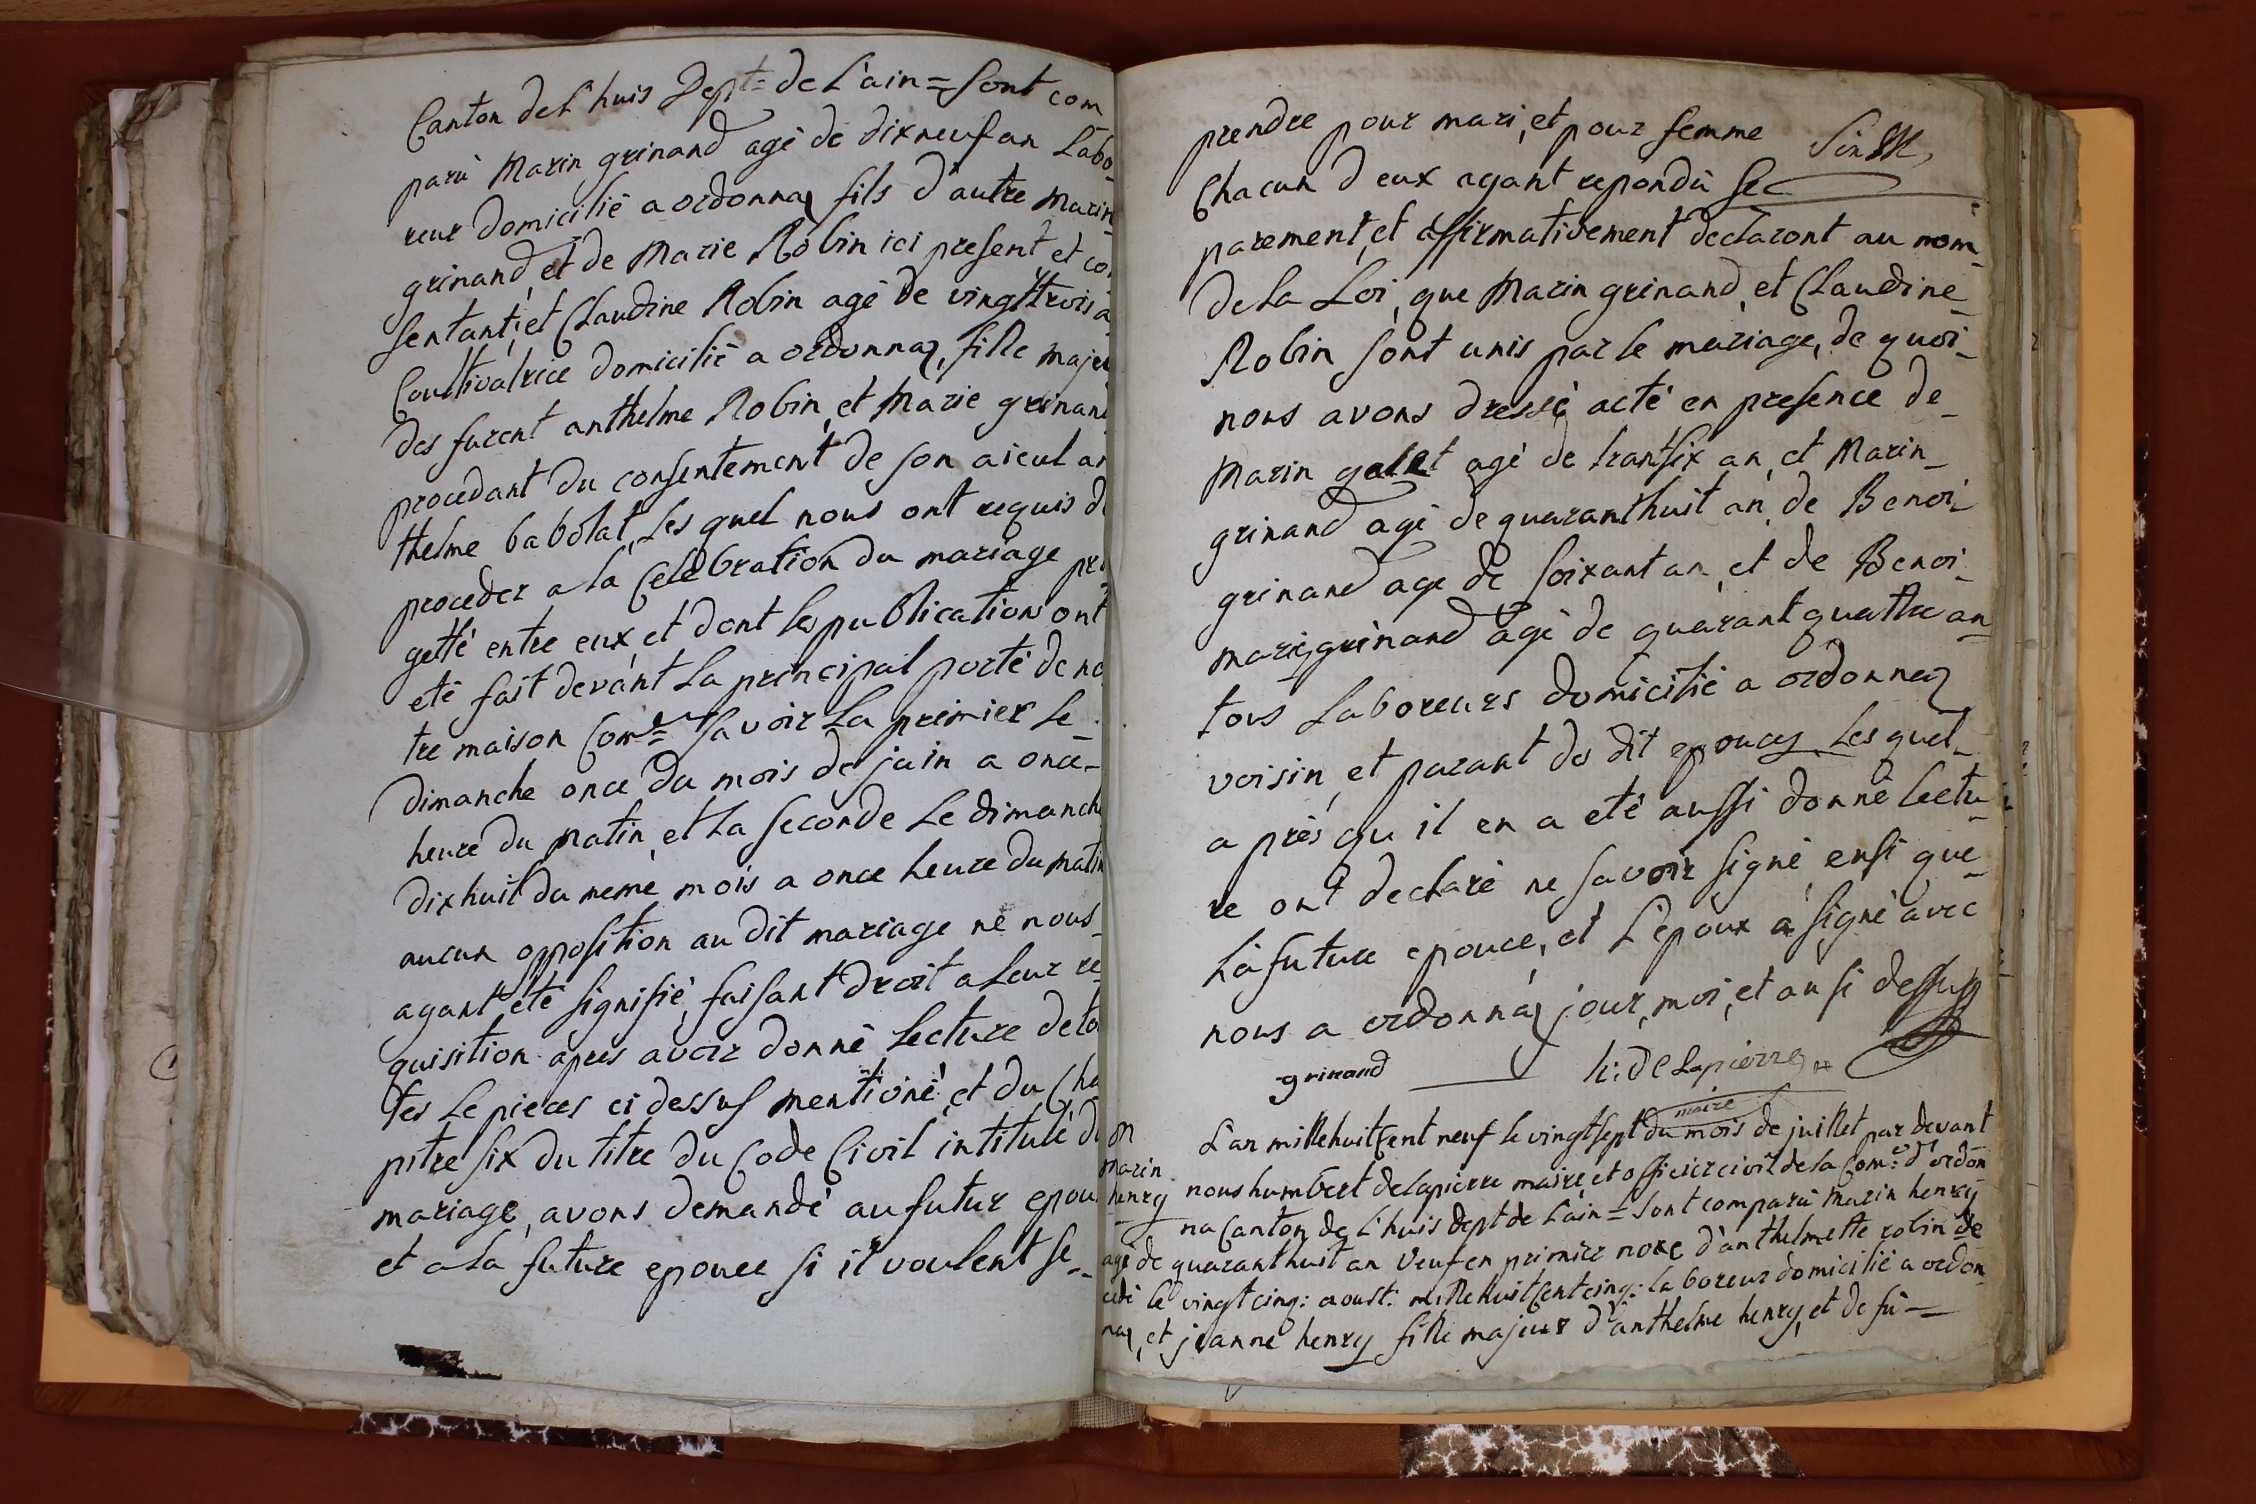 Canton de L'huis Dept= de L'ain = Sont com
parù Marin grinand agé de dixneuf an Labo-
reur domicilié a ordonnaz fils d'autre Marin
grinand, et de Marie Robin ici present et co
sentant, et Claudine Robin agé de vingttrois a
Coultivatrice domicilié a ordonnaz, fille majeu
des furent anthelme Robin, et Marie grinand
procedant du consentement de son aieul an
thelme babolat, Les quel nous ont requis de
proceder a la Celebration du mariage pro
getté entre eux, et dont les publications ont
eté fait devant La principal porté de no
tre maison Com=ne Savoir La premier le-
dimanche once du mois de juin a once-
heure du matin, et La seconde Le dimanche
dixhuit du meme mois a once heure du matin
aucun opposition au dit mariage ne nous-
ayant eté signifié, faisant droit a Leur re-
quisition apres avoir donné Lecture de to
tes Le pieces ci dessus mentioné, et du Cha
pitre six du titre du Code Civil intitulé du
mariage, avons demandé au futur epou
et a la future epouce si il voulent se-
prendre pour mari, et pour femme
Chacun d eux ayant repondù se
parement, et affirmativement declaront au nom-
de la Loi, que Marin grinand, et Claudine-
Robin sont unis par le mariage, de quoi-
nous avons dressé acté en presence de-
Marin galet agé de trantsix an, et Marin-
grinand agé de quaranthuit an, de Benoi-
grinand age de soixant an, et de Benoi-
marie grinand agé de quarant quattre an-
tous Laboreurs domicilié a ordonnaz
voisin, et parant des dit epouces Les quel-
a près qu il en a eté aussi donné lectu-
re ont declaré ne savoir signé ensi que-
La future epouce, et L'epoux a signé avec
nous a ordonnaz jour, moi, et an si dessus
grinand h: de Lapierre
maire
on
Marin
henry
L'an millehuitcent neuf le vingtsept du mois de juillet par devant
nous humbert delapierre maire et officier civil de la Com:e d'ordon
na Canton de L'huis dept de L'ain = Sont comparù Marin henry
agé de quaranthuit an Veuf en primier noce d'anthelmette robin de
cedé le vingtcinq: aoust: millehuitcentcinq: laboreur domicilié a ordon
naz, et jeanne henry fille majeur d'anthelme henry, et de fû-